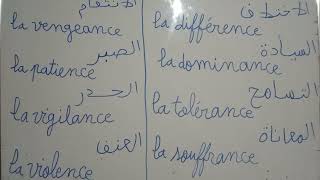 الانتقام
la vengeance
الصبر
la patience
الحذر
la vigilance
العنف
la violence
الاختلاف
la différence
السيادة
la dominance
التسامح
la tolérance
المعاناة
la souffrance